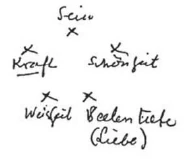 Sein
Kraft Schönheit
Weisheit Seelentiefe
(Liebe)